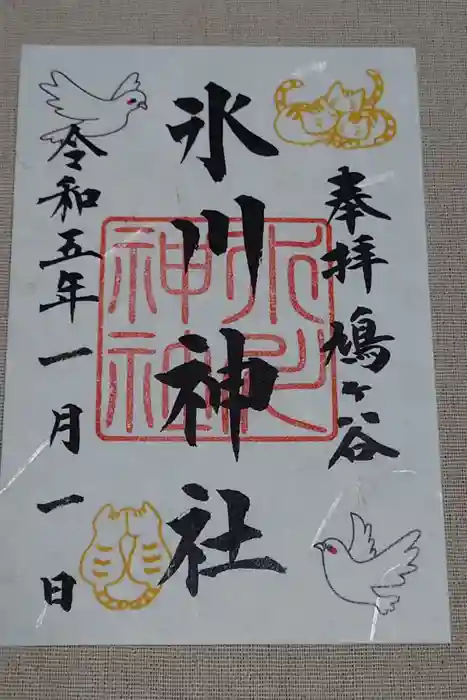 奉拝 鳩ヶ谷
氷川神社
令和五年一月一日
氷川
神社